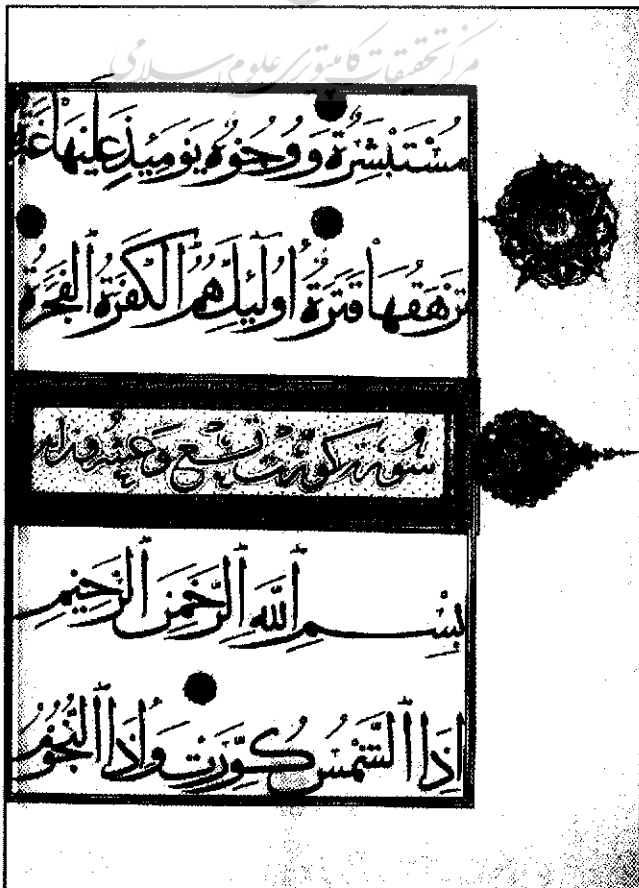 مرکز تحقیقات کامپیوتری علوم اسلامی
مُسْتَبْشِرَةٌ وَوُجُوهٌ يَوْمَئِذٍ عَلَيْهَا غَبَرَةٌ
تَرْهَقُهَا قَتَرَةٌ أُولَٰئِكَ هُمُ الْكَفَرَةُ الْفَجَرَةُ
سورة كورت تسع وعشرون آية
بِسْمِ اللَّهِ الرَّحْمَٰنِ الرَّحِيمِ
إِذَا الشَّمْسُ كُوِّرَتْ وَإِذَا النُّجُومُ